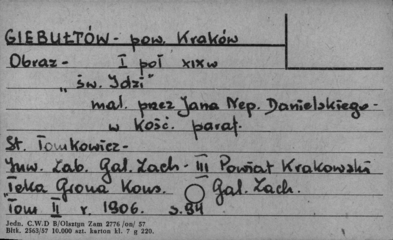 GIEBUŁTÓW - pow. Kraków
Obraz - I poł XIX w
„św. Idzi"
mal. przez Jana Nep. Danielskiego -
w kość. paraf.
St. Tomkowicz -
Inw. Zab. Gal. Zach - III Powiat Krakowski
"Teka Grona Kons. Gal. Zach.
Tom II r. 1906. s. 84
Jedn. C.W.D B/Olsztyn Zam 2776 /on/ 57
Bltk. 2563/57 10.000 szt. karton kl. 7 g 220.